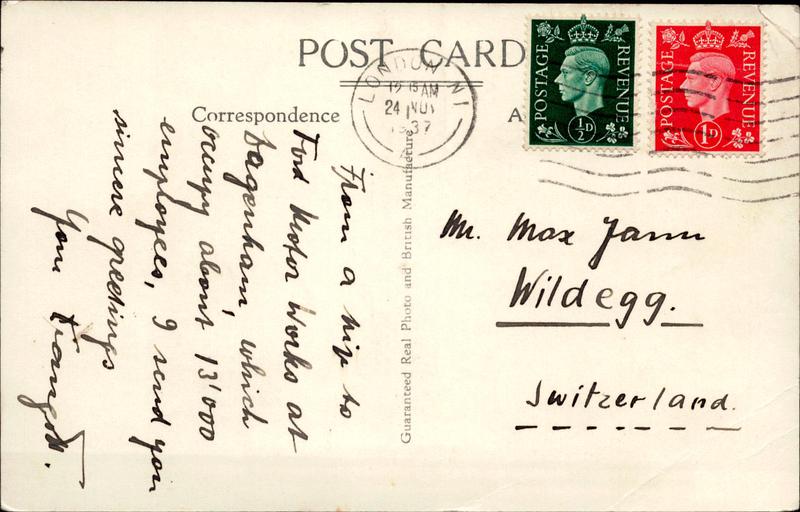 POST CARD
Correspondence
A
LONDON N1
12 15 AM
24 NOV
1937
A
POSTAGE REVENUE
½D
POSTAGE REVENUE
1D
From a trip to
Ford Motor Works at
Dagenham, which
occupy about 13'000
employees, I send you
sincere greetings
Your
Guaranteed Real Photo and British Manufacture
Mr. Max Jann
Wildegg.
Switzerland.